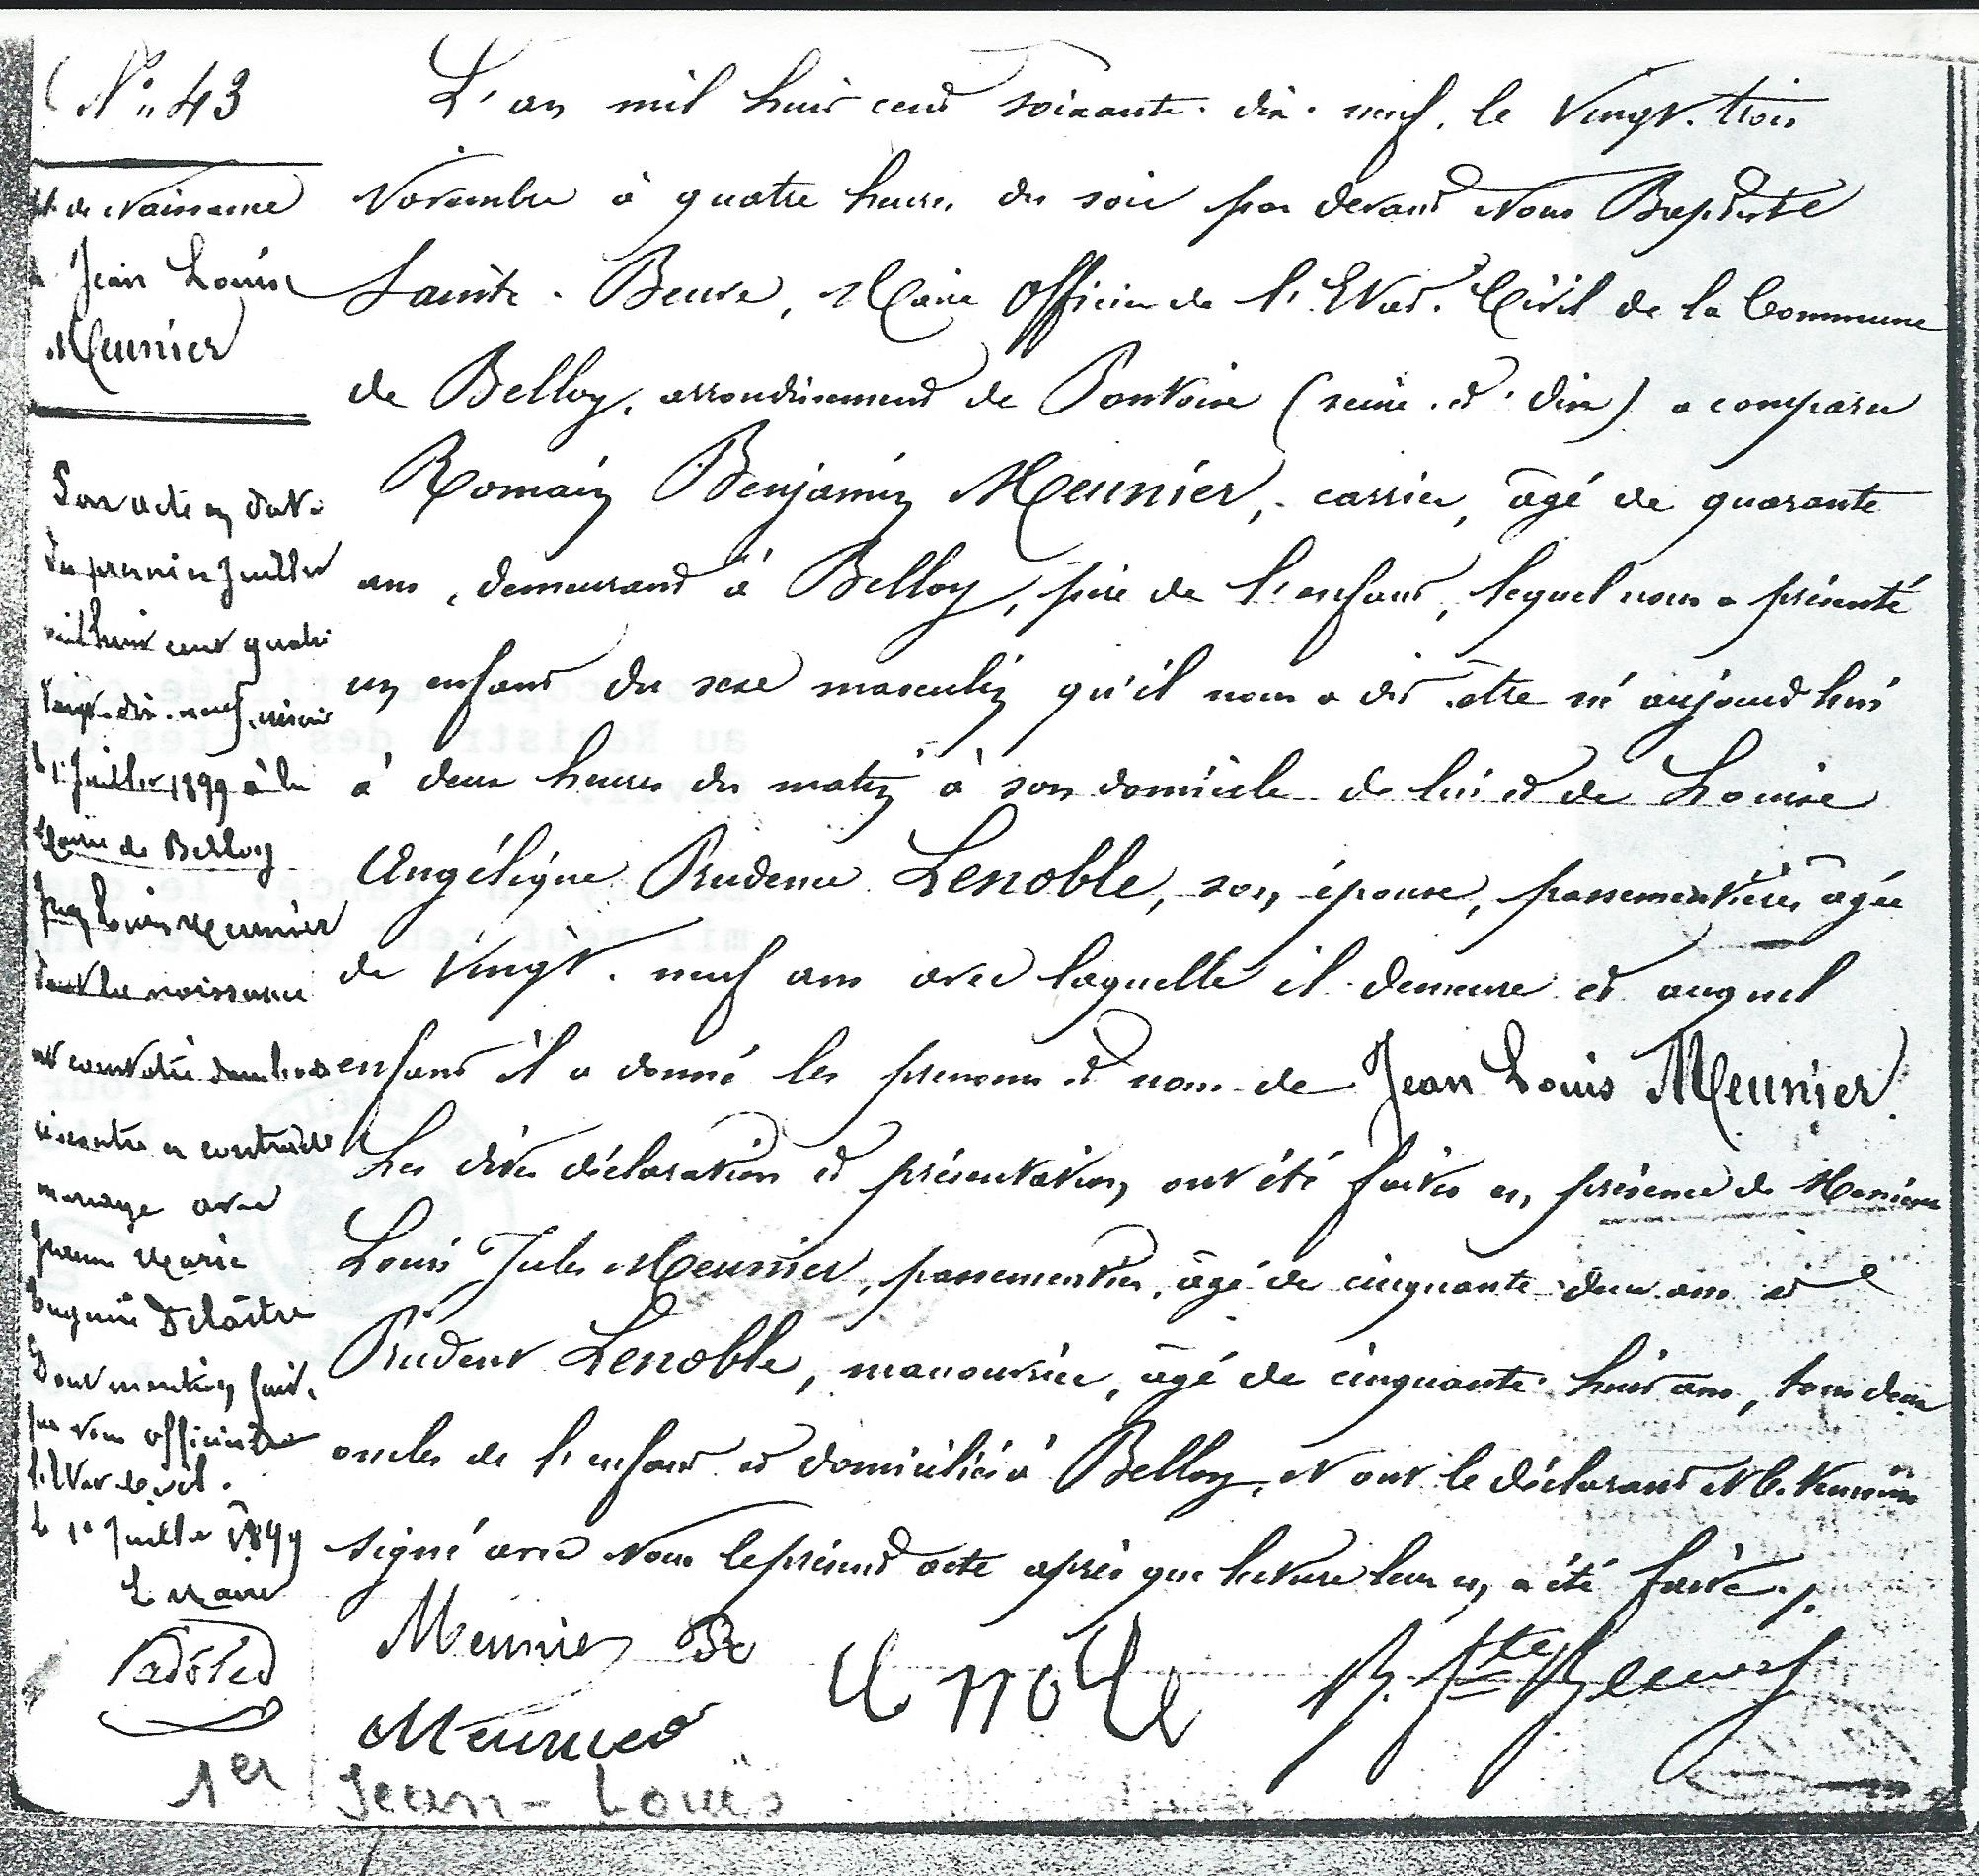 N° 43
de Naissance
Jean Louis
Meunier
L'an mil huit cent soixante-dix-neuf, le vingt-trois
Novembre à quatre heures du soir par devant Nous Baptiste
Sainte-Beuve, Maire Officier de l'Etat-Civil de la Commune
de Belloy, arrondissement de Pontoise (seine-et-oise) a comparu
Romain Benjamin Meunier, carrier, âgé de quarante
ans, demeurant à Belloy, père de l'enfant, lequel nous a présenté
un enfant du sexe masculin qu'il nous a dit être né aujourd'hui
à deux heures du matin à son domicile de lui et de Louise
Angélique Prudence Lenoble, son épouse, passementière, âgée
de vingt-neuf ans avec laquelle il demeure et auquel
enfant il a donné les prénoms et nom de Jean Louis Meunier.
Les dites déclaration et présentation ont été faites en présence de Messieurs
Louis Jules Meunier, passementier, âgé de cinquante-deux ans et
Prudent Lenoble, manouvrier, âgé de cinquante-huit ans, tous deux
oncles de l'enfant et domiciliés à Belloy, et ont le déclarant et les témoins
signé avec Nous le présent acte après que lecture leur en a été faite.
Par acte en date
du premier Juillet
mil huit cent quatre
vingt-dix-neuf, inscrit
le 1er Juillet 1899 à la
Mairie de Belloy
Jean Louis Meunier
dont la naissance
est constatée dans l'acte
ci-contre a contracté
mariage avec
Jeanne Marie
Eugénie Delaitre
Dont mention faite
par nous officier de
l'Etat Civil.
le 1er Juillet 1899
Le Maire
Meunier
Lenoble
B. Ste Beuve
Meunier
1er Jean-Louis